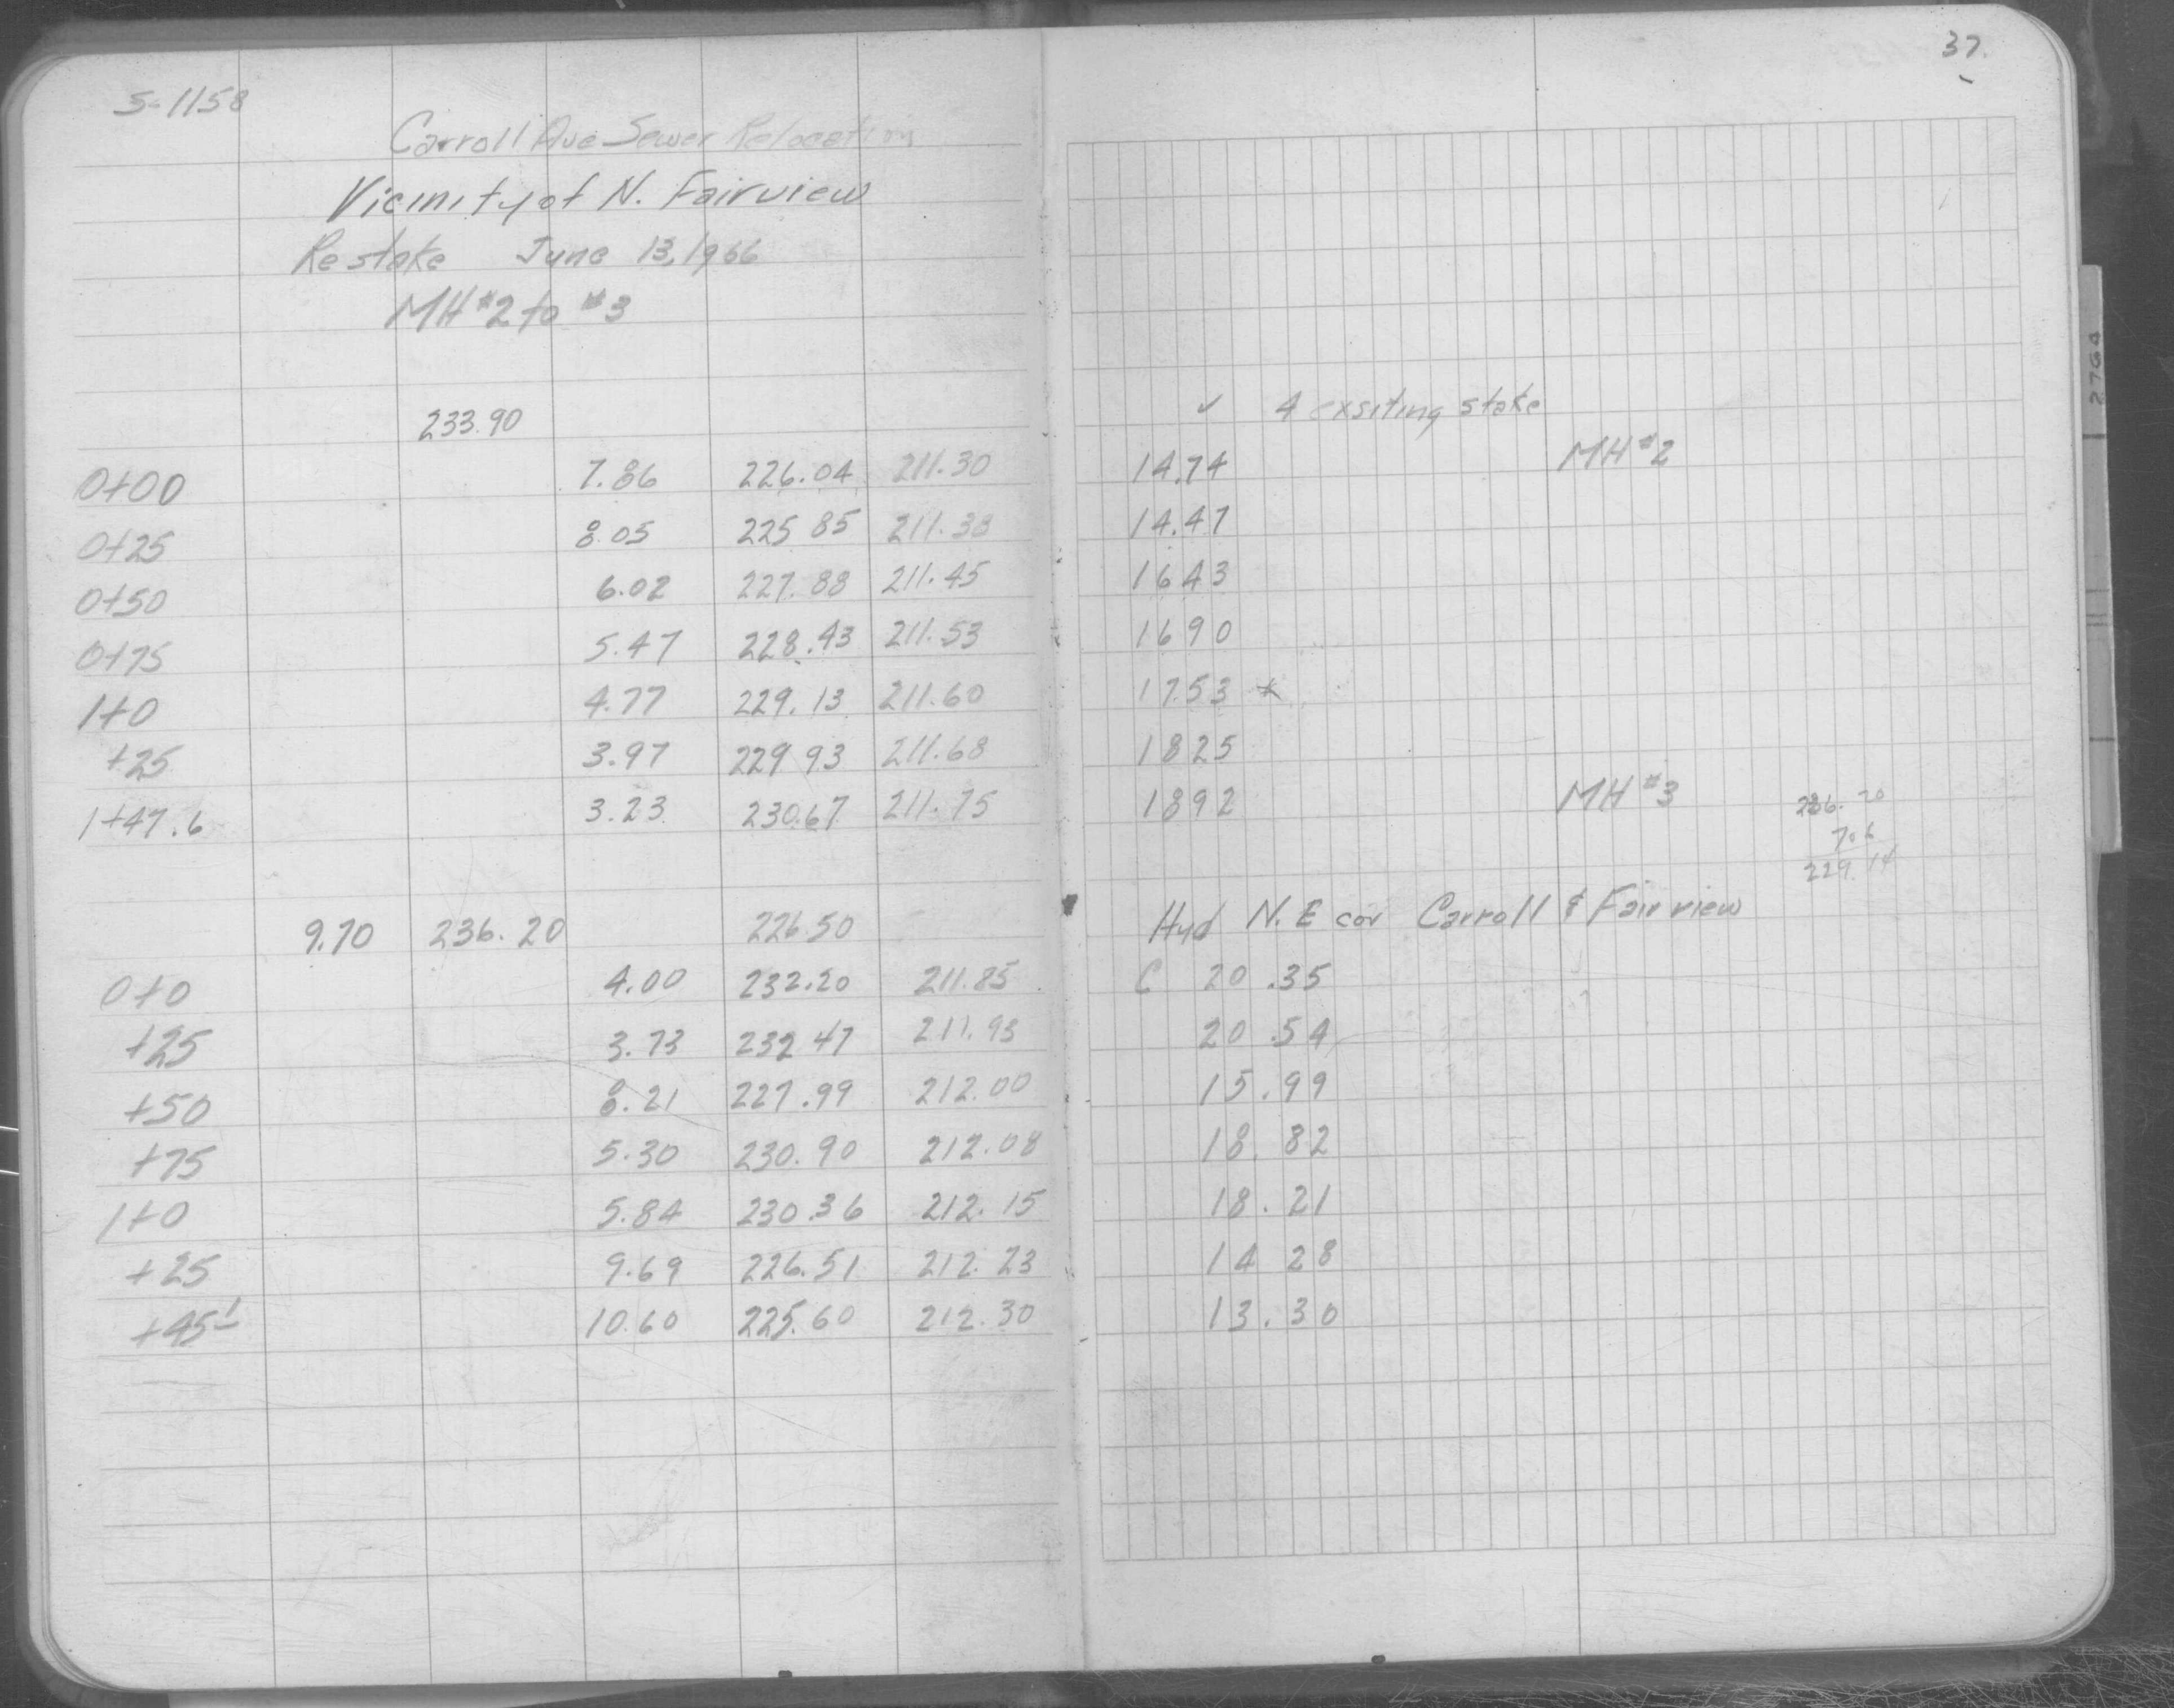 37.
S-1158
Carroll Ave Sewer Relocation
Vicinity of N. Fairview
Restake June 13, 1966
MH #2 to #3
233.90 ✓ 4 exsiting stake
0+00 7.86 226.04 211.30 14.74 MH #2
0+25 8.05 225 85 211.38 14.47
0+50 6.02 227.88 211.45 16 43
0+75 5.47 228.43 211.53 16 90
1+0 4.77 229.13 211.60 17.53 *
+25 3.97 229 93 211.68 18 25
1+47.6 3.23 230.67 211.75 18 92 MH #3
236.20
7.06
229.14
9.70 236.20 226.50 Hyd N.E cor Carroll & Fairview
0+0 4.00 232.20 211.85 C 20.35
+25 3.73 232 47 211.93 20.54
+50 8.21 227.99 212.00 15.99
+75 5.30 230.90 212.08 18.82
1+0 5.84 230.36 212.15 18.21
+25 9.69 226.51 212.23 14 28
+45 1 10.60 225.60 212.30 13.30
2764